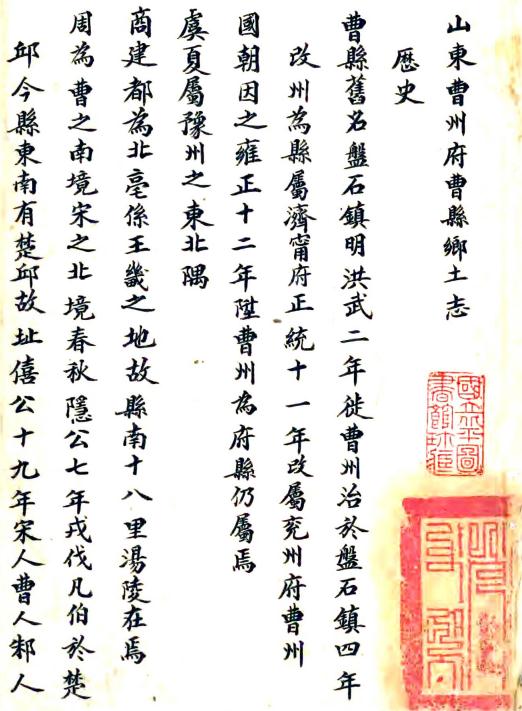 山東曹州府曹縣鄉土志
歷史
曹縣舊名盤石鎮明洪武二年徙曹州治於盤石鎮四年
改州為縣屬濟甯府正統十一年改屬兖州府曹州
國朝因之雍正十二年陞曹州為府縣仍屬焉
虞夏屬豫州之東北隅
商建都為北亳係王畿之地故縣南十八里湯陵在焉
周為曹之南境宋之北境春秋隱公七年戎伐凡伯於楚
邱今縣東南有楚邱故址僖公十九年宋人曹人邾人
國立北平圖
書館珍藏